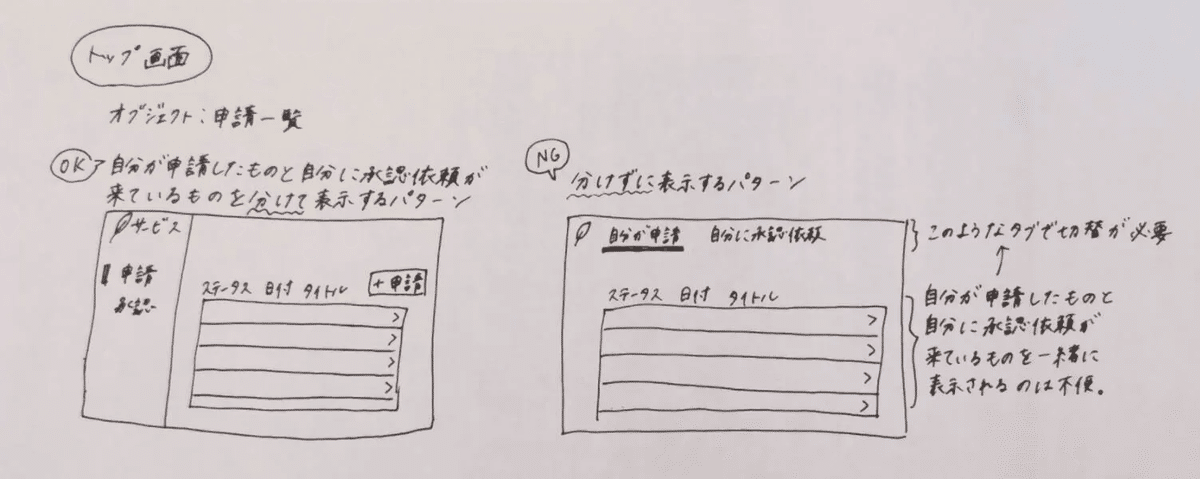 トップ画面
オブジェクト：申請一覧
OK
自分が申請したものと自分に承認依頼が
来ているものを分けて表示するパターン
サービス
申請
承認
ステータス 日付 タイトル
+申請
>
>
>
>
NG
分けずに表示するパターン
自分が申請 自分に承認依頼
ステータス 日付 タイトル
>
>
>
>
このようなタブで切替が必要
↑
自分が申請したものと
自分に承認依頼が
来ているものを一緒に
表示されるのは不便。